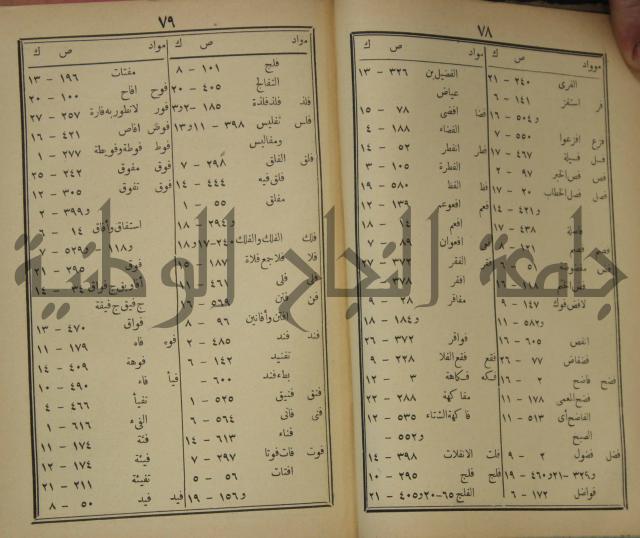 ٧٨
موواد ص ك
الفرى ٢٤٠ - ٢١
فر استفز ١٤١ - ٦
و٥٠٤ - ١٦
فزع افزعوا ٥٥٠ - ٧
فسل فسيلة ٤٦٧ - ١٧
فص فص الخبر ٩٧ - ٢
فصل فصل الخطاب ٢٠ - ١٧
و٤٢١ - ١٤
فاصلة ٤٣٨ - ١٧
لافض فوك ١٤٧ - ٩
و٥٨٢ - ١١
انفض ٦٠٥ - ١٦
فضفاض ٧٧ - ٢٦
فضح فاضح ٢ - ١٦
فضح المعمى ١٧٨ - ١١
الفاضح أى ٥١٣ - ١١
الصبح
فضل فضول ٢ - ٩
و٣٢٩ - ٢١ و٤٦٠ - ١٩
فواضل ١٧٢ - ٦
مواد ص ك
الفضيل بن ٣٢٦ - ١٣
عياض
فضا افضى ٧٨ - ١٥
الفضاء ١٨٨ - ٤
فطر انفطر ٥٢ - ١٤
الفطرة ١٠٥ - ٣
فظ الفظ ٥٨٠ - ١٩
فعم افعوعم ١٣٩ - ١٢
افعم ١٤ - ١٨
افعوان ٨٩ - ٧
الفقر ٣٧٢ - ٢٧
افقر ٣٧٨
مفاقر ٢٨ - ٩
و١٨٤ - ١٨
فواقر ٣٧٢ - ٢٦
فقع فقع الفلا ٢٢٨ - ٩
فكه فكاهة ٣ - ١٢
مفاكهة ٢٨٨ - ٢٢
فاكهة الشتاء ٥٣٥ - ١٢
و٥٥٢ -
فلت الانفلات ٣٩٨ - ١٤
فلج فلج ٢٩٥ - ١٠
الفلج ٦٥ - ٢٠ و٤٠٥ - ٢١
٧٩
مواد ص ك
فلج ١٠١ - ٨
التفالج ٤٠٥ - ٢٠
فلذ فلذ فلذة ١٨٥ - ٢و٣
فلس تفليس ٣٩٨ - ١١و١٣
ومفاليس
فلق الفلق ٢٩٨ - ٧
فلق فيه ٤٤٤ - ١٤
مفلق ٥٥ - ١
و٢٩٤ - ١٨
فلك الفلك والفلك ٢٤٠ - ١٧و١٨
فلا فلا جع فلاة ١٨٧ - ١٥
فلى ٤٦١ - ١١
فن فنن ٥٦٩ - ١٦
افنان وأفانين ٩٦ - ٨
فند فند ٤٨٥ - ٢
تفنيد ١٤٢ - ٦
بطء فند ٦٠٠ -
فنق فنيق ٥٢٥ - ١
فنى فانى ٥٦٤ - ٦
فناء ٦١٣ - ١٤
فوت فات فوتا ٢٩٧ - ٧
افتات ٥٦ - ٥
و١٥٦ - ١٩
مواد ص ك
مفتات ١٩٦ - ١٣
فوح افاح ١٠٠ - ٢٠
فور لا نطور به فارة ٢٥٧ - ٢٧
فوض افاض ٤٢١ - ١٦
فوط فوطة وفويطة ٢٧٧ - ١
فوق مفوق ٢٤٢ - ٢٥
فوق تفوق ٣٠٥ - ١٢
و٣٩٩ - ٢
استفاق وأفاق ١٤ - ٦
و١١٨ - و٥٢٩ - ٧
فوق ٢٩٥ - ٢١
ج فيق ج فيقة
فواق ٤٧٠ - ١٣
فوه فاه ١٧٩ - ١١
فوهة ٤٠٩ - ١٤
فيأ فاء ٤٩٠ - ١٠
تفيأ ٤٦٦ - ٤
الفىء ٦١٦ - ١
فئة ١٧٤ - ١١
فيئة ١٧٤ - ١٢
تفيئة ٢١١ - ٢١
فيد فيد ٥٠ - ٨
جامعة النجاح الوطنية